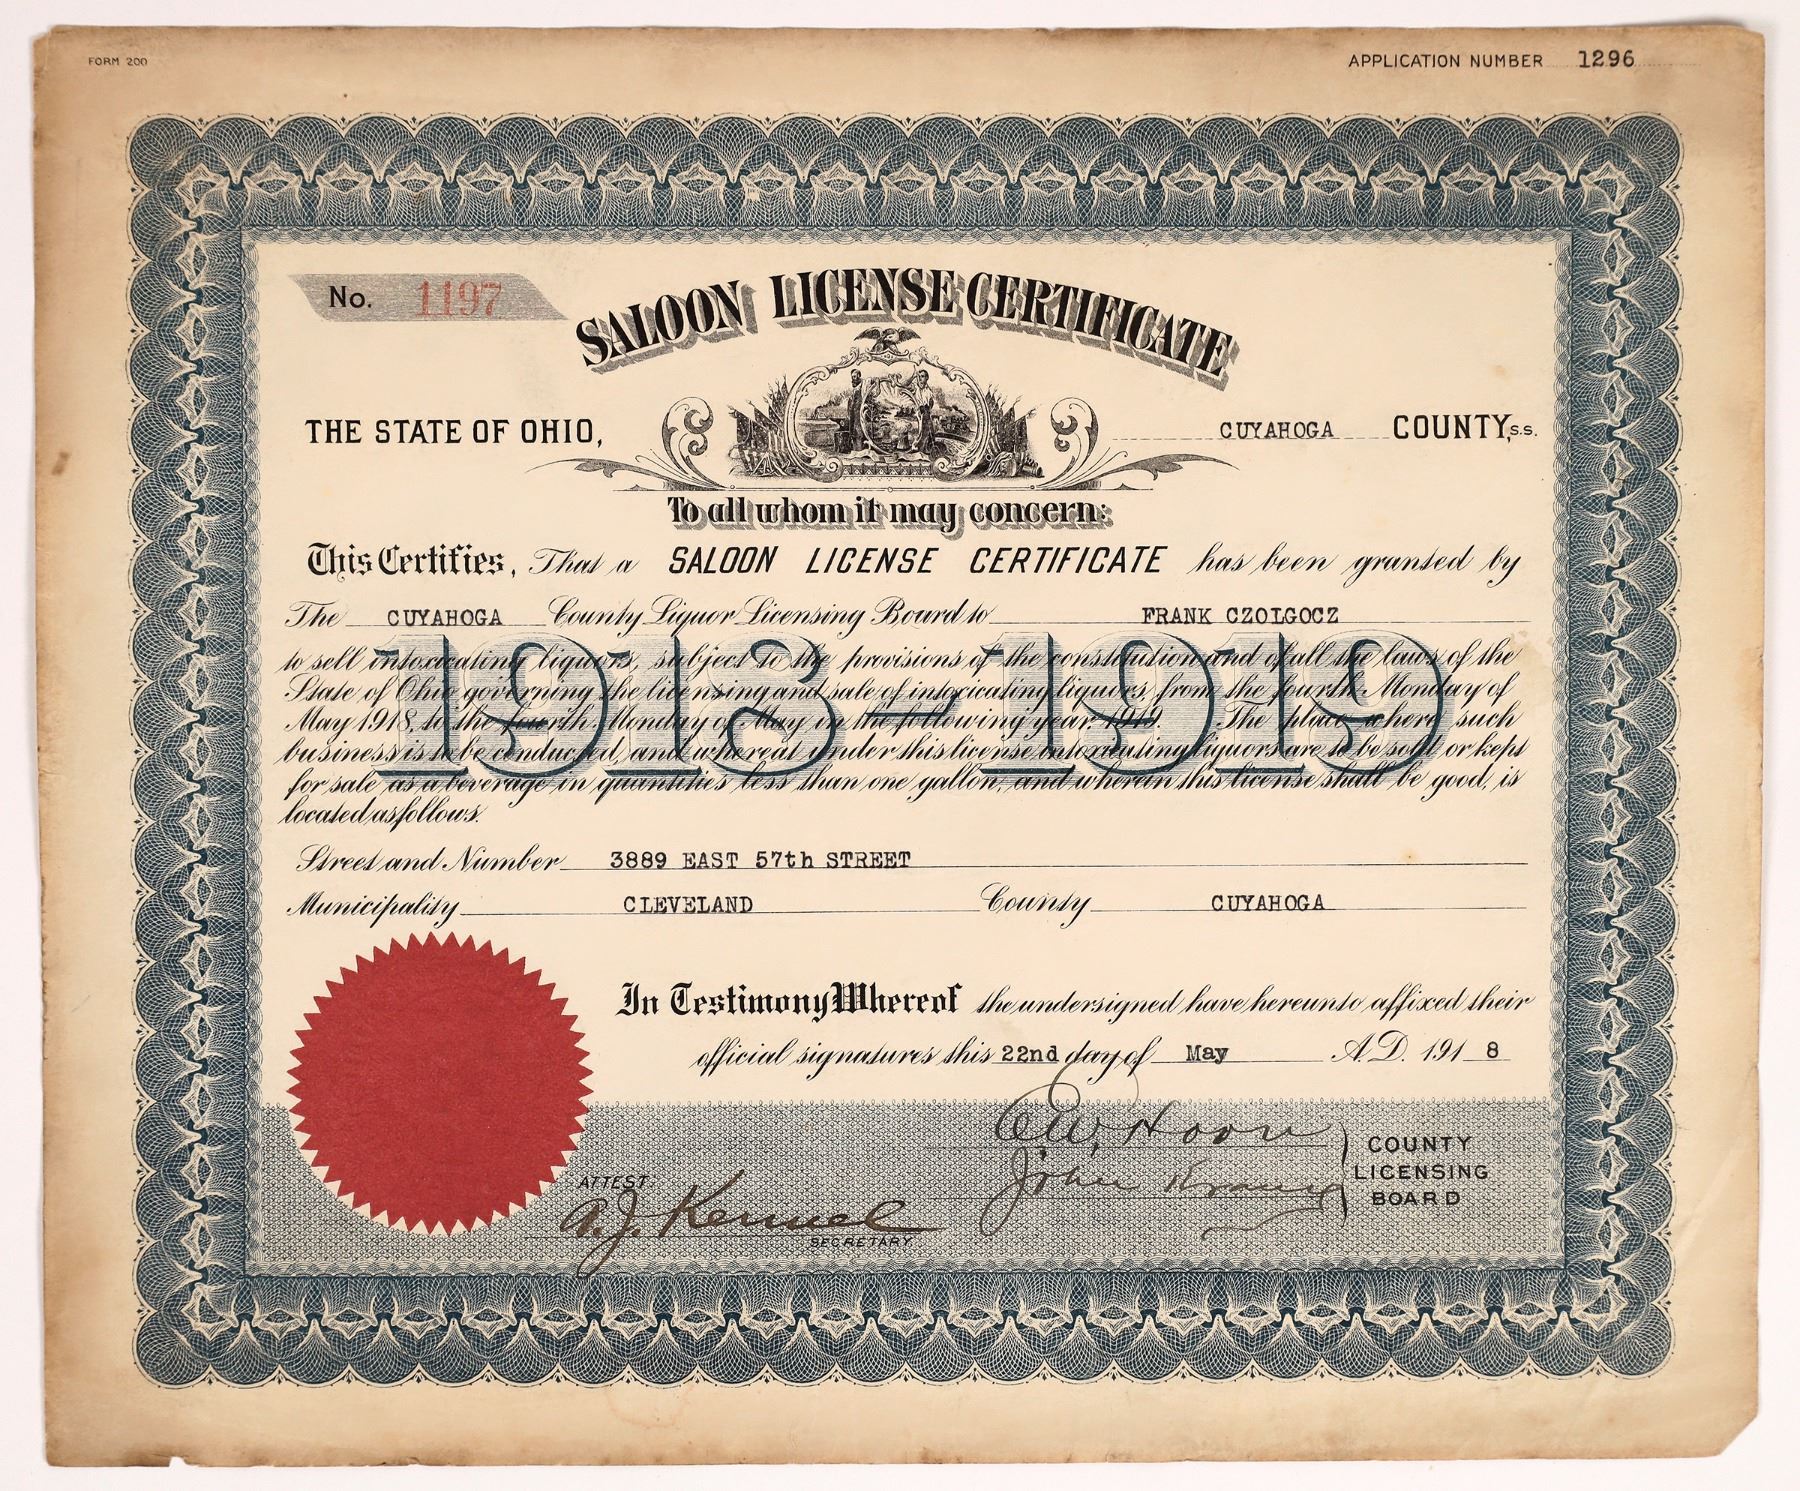 FORM 200
APPLICATION NUMBER 1296
No. 1197
SALOON LICENSE CERTIFICATE
THE STATE OF OHIO, CUYAHOGA COUNTY, S.S.
To all whom it may concern:
This Certifies, That a SALOON LICENSE CERTIFICATE has been granted by
The CUYAHOGA County Liquor Licensing Board to FRANK CZOLGOCZ
1918-1919
to sell intoxicating liquors, subject to the provisions of the constitution and of all the laws of the
State of Ohio governing the licensing and sale of intoxicating liquors, from the fourth Monday of
May 1918, to the fourth Monday of May in the following year 1919. The place where such
business is to be conducted, and whereat under this license intoxicating liquors are to be sold or kept
for sale as a beverage in quantities less than one gallon, and wherein this license shall be good, is
located as follows.
Street and Number 3889 EAST 57th STREET
Municipality CLEVELAND County CUYAHOGA
In Testimony Whereof the undersigned have hereunto affixed their
official signatures this 22nd day of May A.D. 191 8
John
COUNTY
LICENSING
BOARD
ATTEST
A.J.
SECRETARY